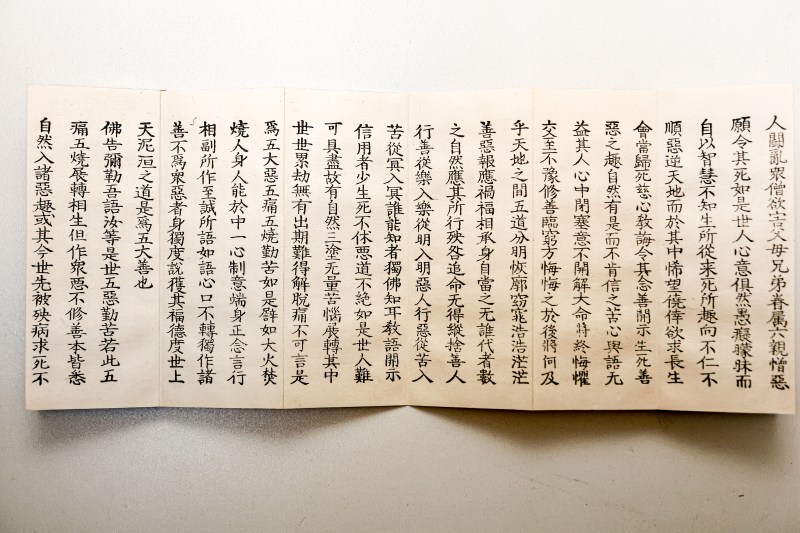 人鬪亂衆僧欲害父母兄弟眷属六親憎惡
願令其死如是世人心意俱然愚癡矇昧而
自以智慧不知生所從来死所趣向不仁不
順惡逆天地而於其中悕望僥倖欲求長生
會當歸死慈心教誨令其念善開示生死善
惡之趣自然有是而不肯信之苦心與語无
益其人心中閉塞意不開解大命將終悔懼
交至不豫修善臨窮方悔悔之於後將何及
乎天地之間五道分明恢廓窈窕浩浩茫茫
善惡報應禍福相承身自當之无誰代者數
之自然應其所行殃咎追命无得縱捨善人
行善從樂入樂從明入明惡人行惡從苦入
苦從冥入冥誰能知者獨佛知耳教語開示
信用者少生死不休惡道不絶如是世人難
可具盡故有自然三塗无量苦惱展轉其中
世世累劫無有出期難得解脫痛不可言是
爲五大惡五痛五燒勤苦如是譬如大火焚
燒人身人能於中一心制意端身正念言行
相副所作至誠所語如語心口不轉獨作諸
善不爲衆惡者身獨度說獲其福德度世上
天泥洹之道是爲五大善也
佛告彌勒吾語汝等是世五惡勤苦若此五
痛五燒展轉相生但作衆惡不修善本皆悉
自然入諸惡趣或其今世先被殃病求死不